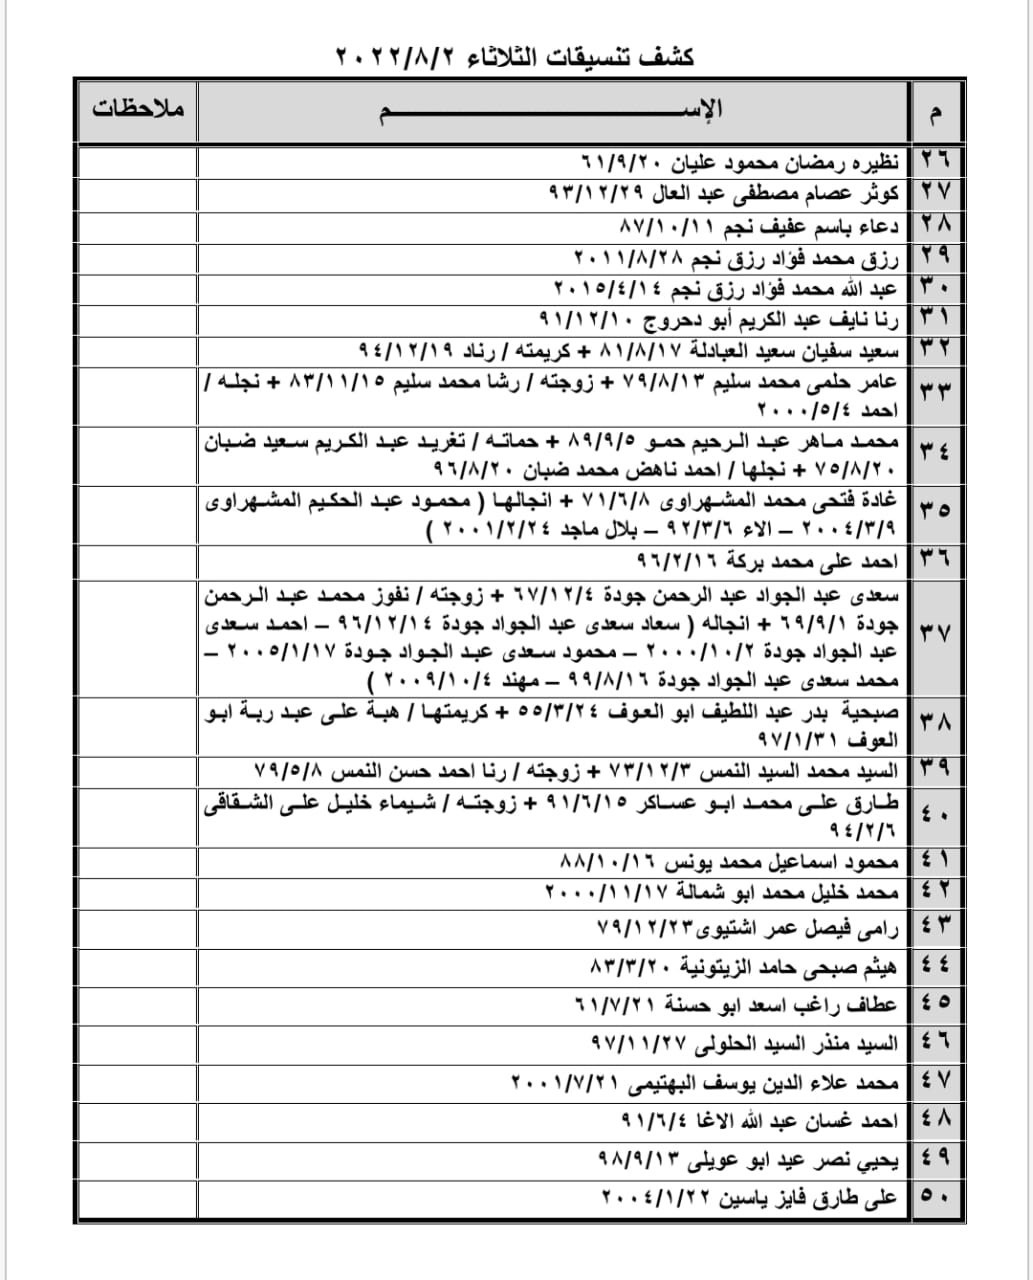 كشف تنسيقات الثلاثاء ٢٠٢٢/٨/٢
م الإســـم ملاحظات
٢٦ نظيره رمضان محمود عليان ٦١/٩/٢٠
٢٧ كوثر عصام مصطفى عبد العال ٩٣/١٢/٢٩
٢٨ دعاء باسم عفيف نجم ٨٧/١٠/١١
٢٩ رزق محمد فؤاد رزق نجم ٢٠١١/٨/٢٨
٣٠ عبد الله محمد فؤاد رزق نجم ٢٠١٥/٤/١٤
٣١ رنا نايف عبد الكريم أبو دحروج ٩١/١٢/١٠
٣٢ سعيد سفيان سعيد العبادلة ٨١/٨/١٧ + كريمته / رناد ٩٤/١٢/١٩
٣٣ عامر حلمى محمد سليم ٧٩/٨/١٣ + زوجته / رشا محمد سليم ٨٣/١١/١٥ + نجله /
احمد ٢٠٠٠/٥/٤
٣٤ محمد ماهر عبد الرحيم حمو ٨٩/٩/٥ + حماته / تغريد عبد الكريم سعيد ضبان
٧٥/٨/٢٠ + نجلها / احمد ناهض محمد ضبان ٩٦/٨/٢٠
٣٥ غادة فتحى محمد المشهراوى ٧١/٦/٨ + انجالها ( محمود عبد الحكيم المشهراوى
٢٠٠٤/٣/٩ – الاء ٩٢/٣/٦ – بلال ماجد ٢٠٠١/٢/٢٤ )
٣٦ احمد على محمد بركة ٩٦/٢/١٦
٣٧ سعدى عبد الجواد عبد الرحمن جودة ٦٧/١٢/٤ + زوجته / نفوز محمد عبد الرحمن
جودة ٦٩/٩/١ + انجاله ( سعاد سعدى عبد الجواد جودة ٩٦/١٢/١٤ – احمد سعدى
عبد الجواد جودة ٢٠٠٠/١٠/٢ – محمود سعدى عبد الجواد جودة ٢٠٠٥/١/١٧ –
محمد سعدى عبد الجواد جودة ٩٩/٨/١٦ – مهند ٢٠٠٩/١٠/٤ )
٣٨ صبحية بدر عبد اللطيف ابو العوف ٥٥/٣/٢٤ + كريمتها / هبة على عبد ربة ابو
العوف ٩٧/١/٣١
٣٩ السيد محمد السيد النمس ٧٣/١٢/٣ + زوجته / رنا احمد حسن النمس ٧٩/٥/٨
٤٠ طارق على محمد ابو عساكر ٩١/٦/١٥ + زوجته / شيماء خليل على الشقاقى
٩٤/٢/٦
٤١ محمود اسماعيل محمد يونس ٨٨/١٠/١٦
٤٢ محمد خليل محمد ابو شمالة ٢٠٠٠/١١/١٧
٤٣ رامى فيصل عمر اشتيوى٧٩/١٢/٢٣
٤٤ هيثم صبحى حامد الزيتونية ٨٣/٣/٢٠
٤٥ عطاف راغب اسعد ابو حسنة ٦١/٧/٢١
٤٦ السيد منذر السيد الحلولى ٩٧/١١/٢٧
٤٧ محمد علاء الدين يوسف البهتيمى ٢٠٠١/٧/٢١
٤٨ احمد غسان عبد الله الاغا ٩١/٦/٤
٤٩ يحيي نصر عيد ابو عويلى ٩٨/٩/١٣
٥٠ على طارق فايز ياسين ٢٠٠٤/١/٢٢